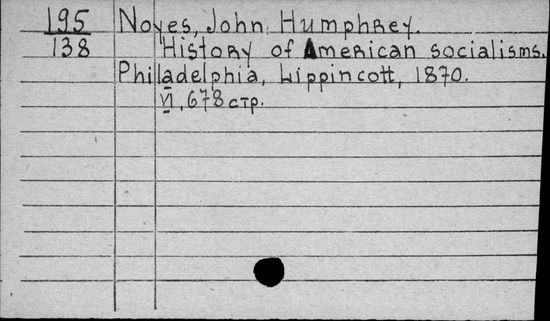 195 Noyes, John Humphrey.
138 History of American socialisms.
Philadelphia, Lippincott, 1870.
VI, 678 стр.